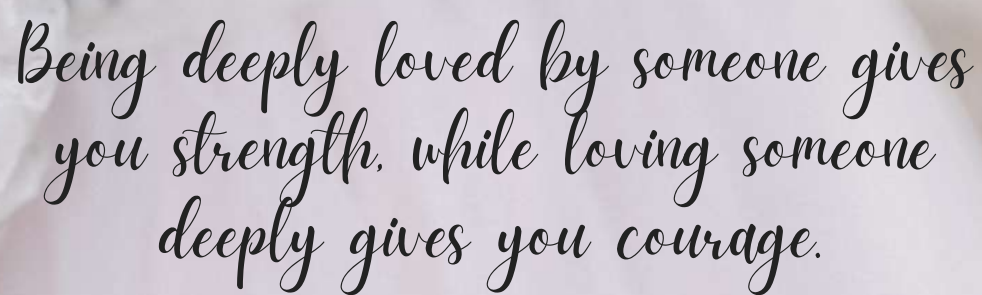 Being deeply loved by someone gives
you strength, while loving someone
deeply gives you courage.